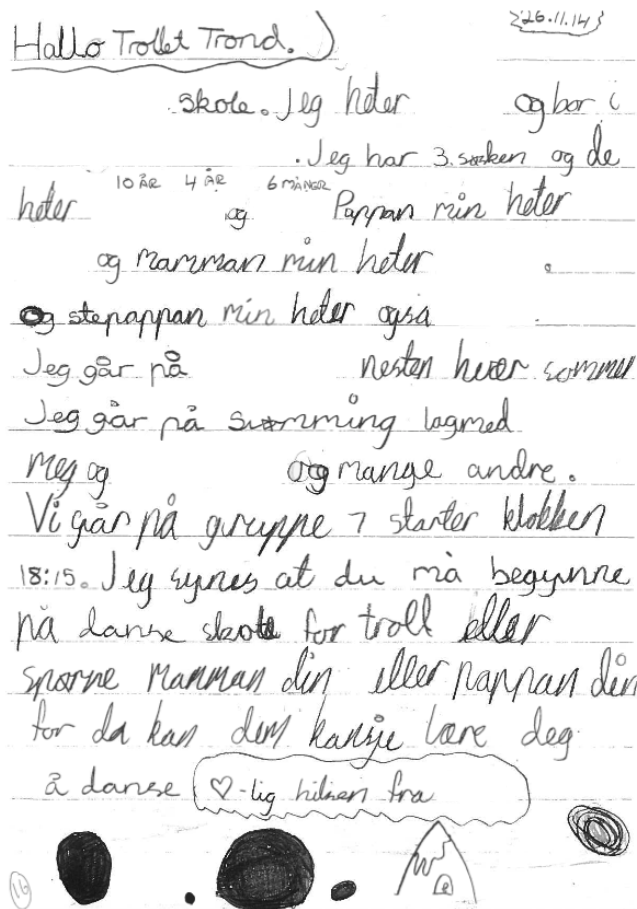 26.11.14
Hallo Trollet Trond.
skole. Jeg heter og bor i
. Jeg har 3. søsken og de
10 ÅR 4 ÅR 6 MÅNER
heter og Pappan min heter
og mamman min heter .
og stepappan min heter også
Jeg går på nesten hver sommer
Jeg går på svømming lagmed
meg og og mange andre.
Vi går på gruppe 7 starter klokken
18:15. Jeg synes at du må begynne
på danse skole for troll eller
spørne mamman din eller pappan din
for da kan dem kansje lære deg
å danse ♡-lig hilsen fra
16